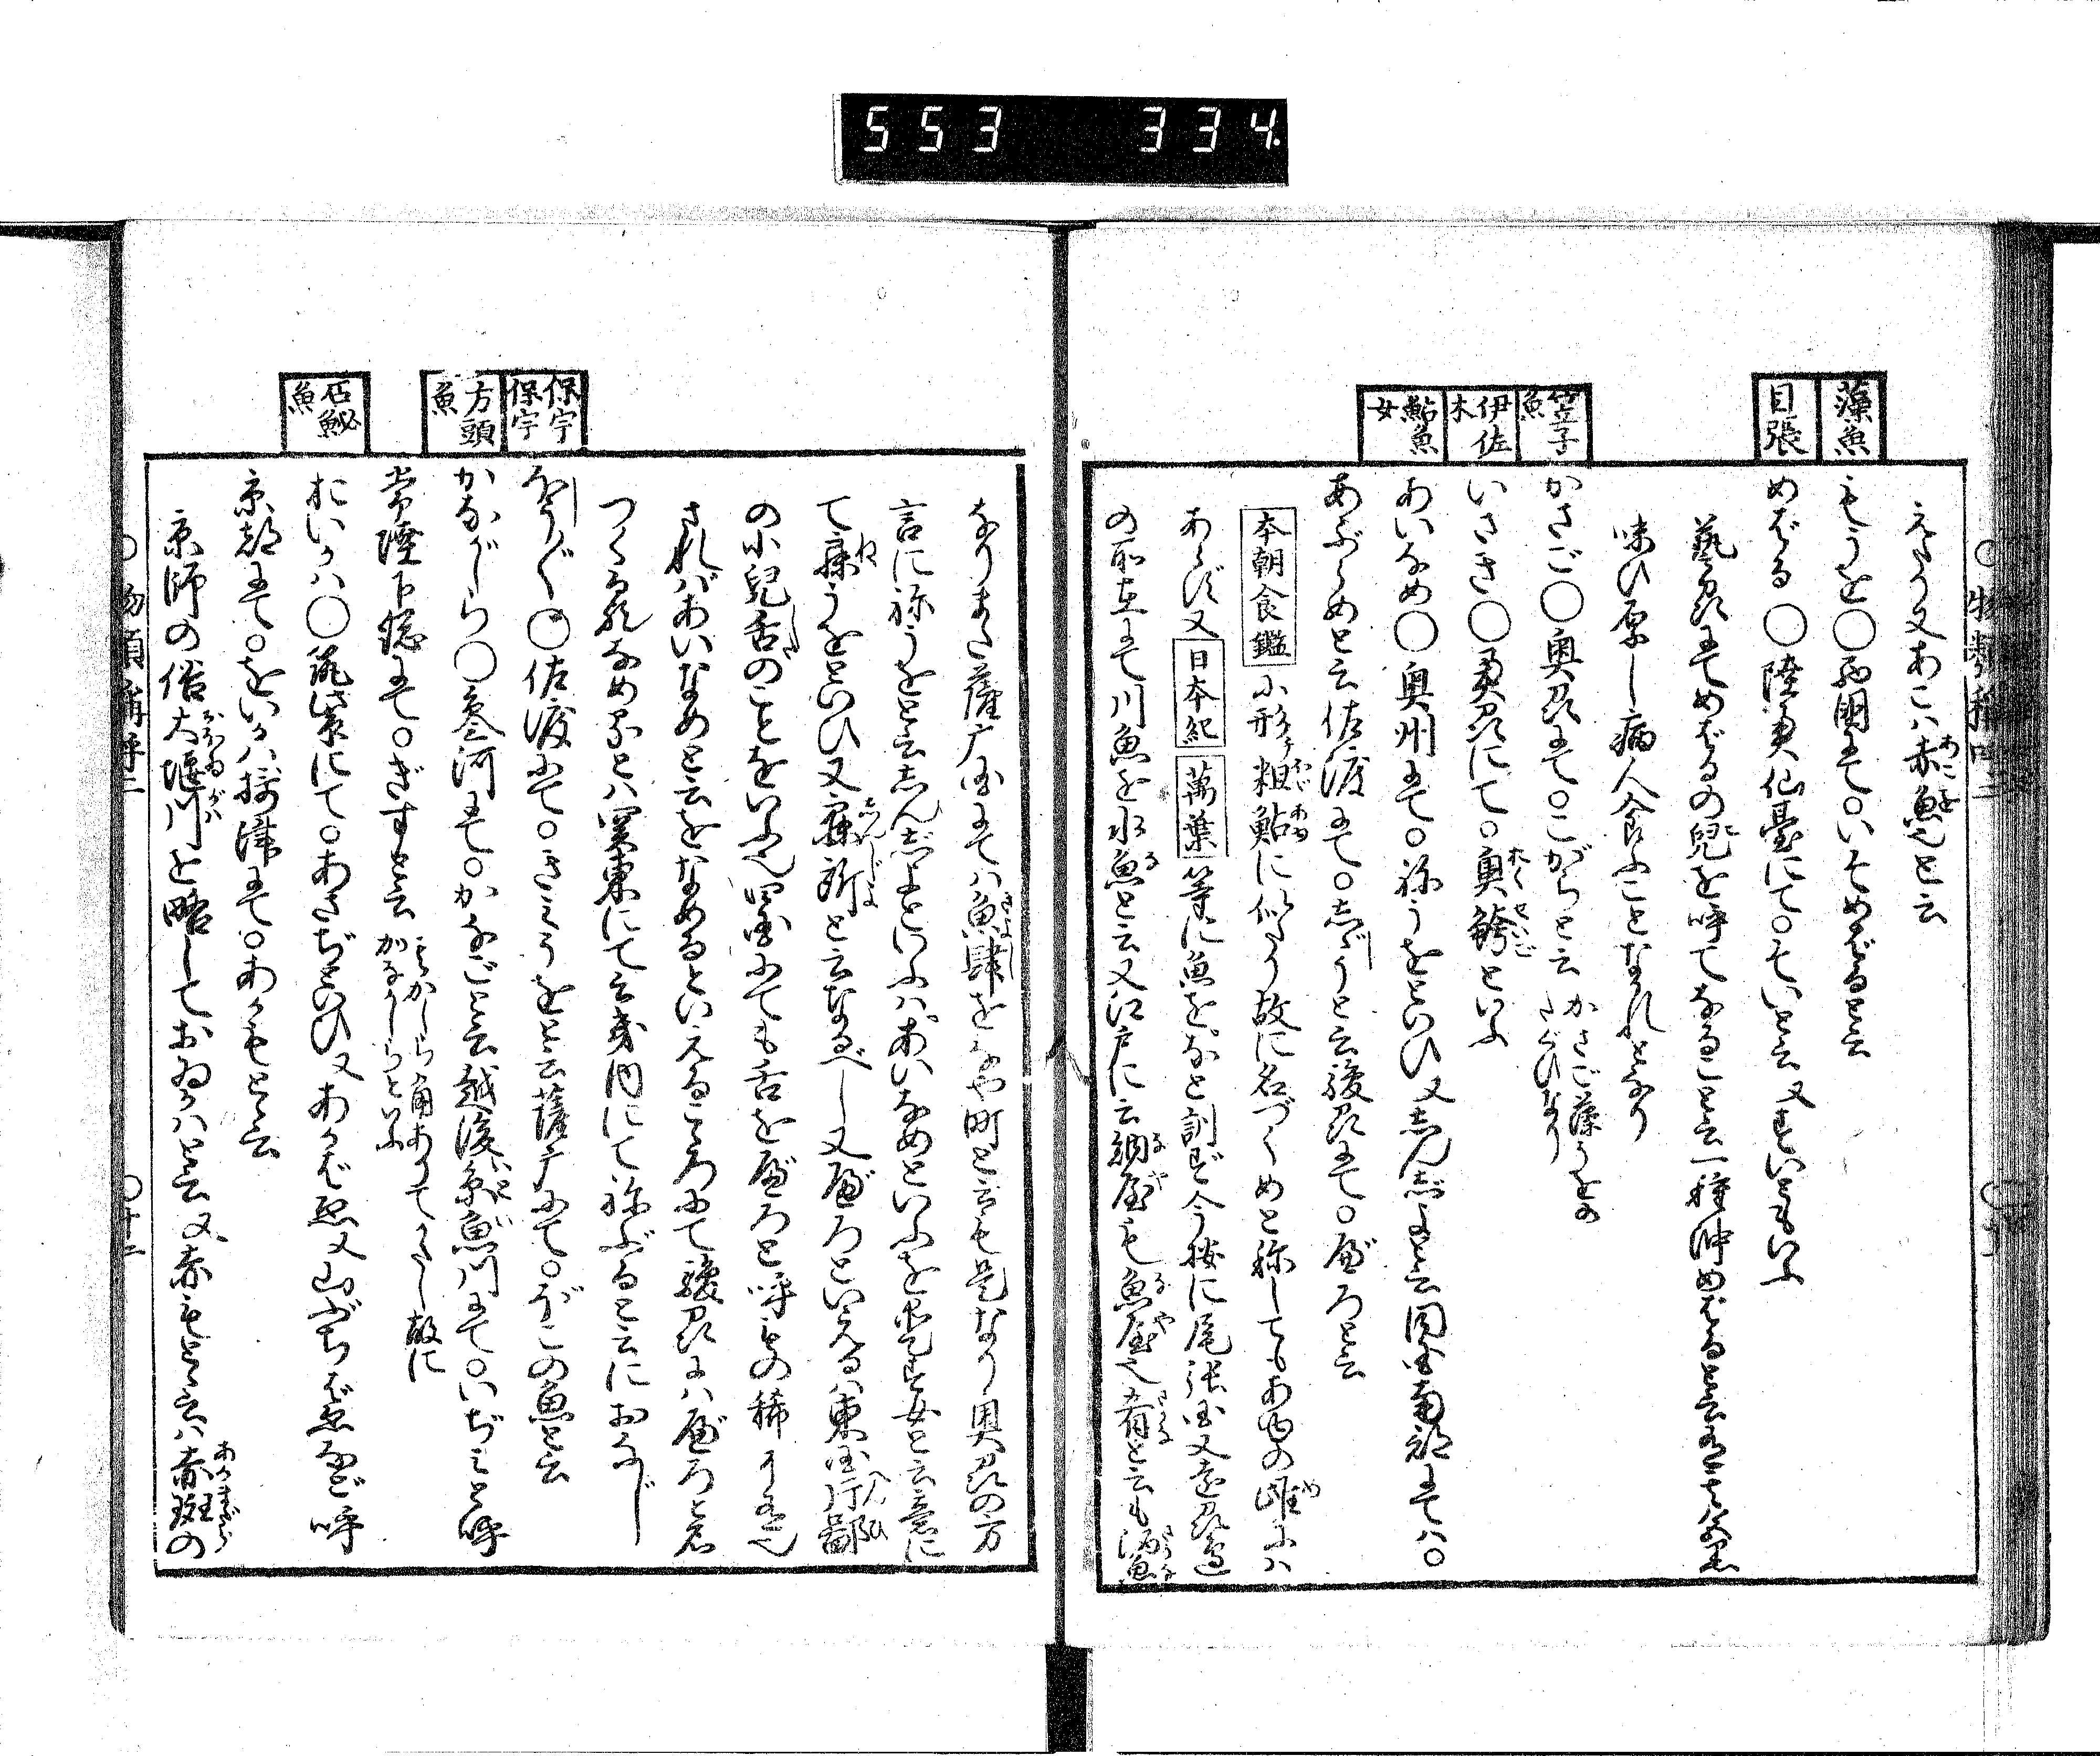 553 334
藻魚
目張
笠子魚
伊佐木
鮎魚女
えたり又あこハ赤魚也と云
もうを○西国にて○いそめばると云
めばる○陸奥仙臺にて○そいと云又すいともいふ
藝州にてめばるの兒を呼てなること云一種沖めばると云有
味ひ厚し病人食ふことなかれとなり
かさご○奥州にて○こがらと云 かさご藻うをの
たぐひなり
いさき○奥州にて○奥鯑といふ
あいなめ○奥州にて○ねうをといひ又しんじよと云同国南部にてハ○
あぶらめと云佐渡にて○しじうと云駿州にて○べろと云
本朝食鑑に形チ粗鮎に似たり故に名づくめと称してもあゆの雌にハ
あらず又日本紀萬葉等に魚を。なと訓ず今按に尾張国又遠州邊
の所在にて川魚を水魚と云又江戸に云納屋も魚屋也肴と云も酒魚
なりまた薩广国にてハ魚肆をなや町と云も是なり奥州の方
言に祢うをと云しんじよといふハ。あいなめといふを愛す女と云意に
て寐うをといひ又寐所と云なるべし又べろといへるハ東国片鄙
の小兒舌のことをいふ也四国にても舌を
されバあいなめと云をなめるといえるこころにて駿州にハべろと名
つくる欤なめるとハ関東にて云畿内にて祢ぶると云におなじ
保宇保宇
方頭魚
石鮅魚
ほうぼう○佐渡にて○きみうをと云薩广にて○がこの魚と云
かながしら○参河にて○かなごと云越後糸魚川にて○いぢみと呼
常陸下総にて○ぎすと云 そのかしら角ありてかたし故に
かながしらといふ
おいかハ○筑紫にて○あさぢといひ又あかばえ又山ぶちばえなど呼
京都にて○をいかハ摂津にて○あかもと云
京師の俗大堰川を略しておゐかハと云又赤もと云ハ赤斑の
物類称呼二
十二